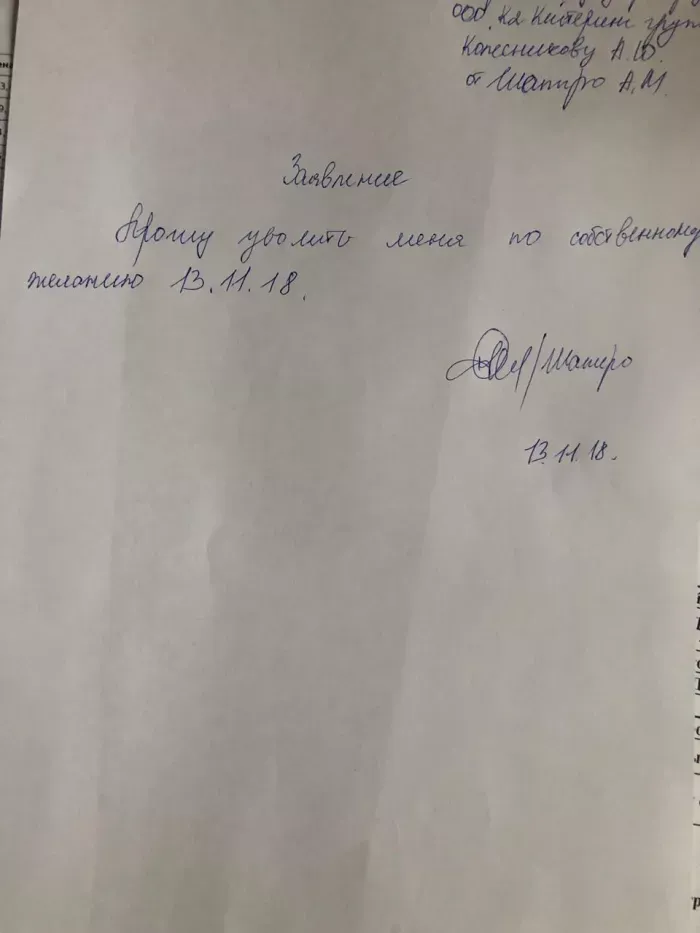 ООО "Ка Китеринг груп
Колесникову А.Ю.
от Шапиро А.М.
Заявление
Прошу уволить меня по собственному
желанию 13.11.18.
/Шапиро
13.11.18.